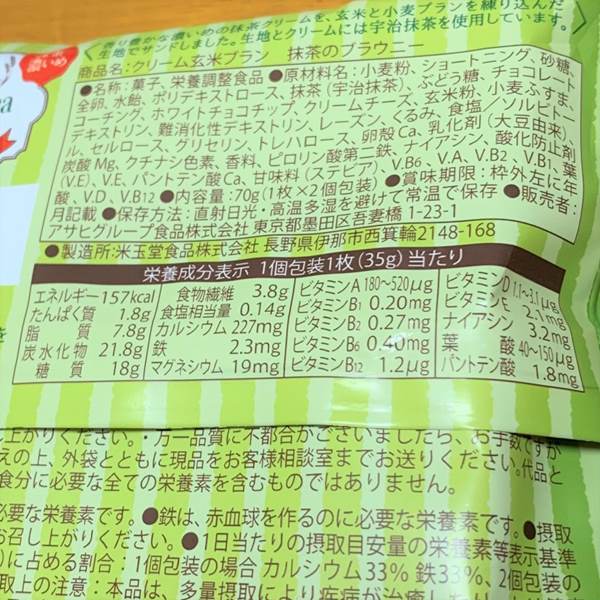 濃いめ
香り豊かな濃いめの抹茶クリームを、玄米と小麦ブランを練り込んだ
生地でサンドしました。生地とクリームには宇治抹茶を使用しています。
商品名:クリーム玄米ブラン 抹茶のブラウニー
●名称:菓子、栄養調整食品 ●原材料名:小麦粉、ショートニング、砂糖、
全卵、水飴、ポリデキストロース、抹茶(宇治抹茶)、ぶどう糖、チョコレート
コーチング、ホワイトチョコチップ、クリームチーズ、玄米粉、小麦ふすま、
デキストリン、難消化性デキストリン、レーズン、くるみ、食塩/ソルビトー
ル、セルロース、グリセリン、トレハロース、卵殻Ca、乳化剤(大豆由来)、
炭酸Mg、クチナシ色素、香料、ピロリン酸第二鉄、ナイアシン、酸化防止剤
(V.E)、V.E、パントテン酸Ca、甘味料(ステビア)、V.B6、V.A、V.B2、V.B1、葉
酸、V.D、V.B12 ●内容量:70g(1枚×2個包装) ●賞味期限:枠外左に年
月記載 ●保存方法:直射日光・高温多湿を避けて常温で保存 ●販売者:
アサヒグループ食品株式会社 東京都墨田区吾妻橋1-23-1
●製造所:米玉堂食品株式会社 長野県伊那市西箕輪2148-168
栄養成分表示 1個包装1枚(35g)当たり
エネルギー 157kcal 食物繊維 3.8g ビタミンA 180~520μg ビタミンD 1.1~3.1μg
たんぱく質 1.8g 食塩相当量 0.14g ビタミンB1 0.20mg ビタミンE 2.1mg
脂質 7.8g カルシウム 227mg ビタミンB2 0.27mg ナイアシン 3.2mg
炭水化物 21.8g 鉄 2.3mg ビタミンB6 0.40mg 葉酸 40~150μg
糖質 18g マグネシウム 19mg ビタミンB12 1.2μg パントテン酸 1.8mg
上がりください。・万一品質に不都合がございましたら、お手数ですが
えの上、外袋とともに現品をお客様相談室までお送りください。代品と
食分に必要な全ての栄養素を含むものではありません。
必要な栄養素です。●鉄は、赤血球を作るのに必要な栄養素です。●摂取
お召し上がりください。●1日当たりの摂取目安量の栄養素等表示基準
)に占める割合:1個包装の場合 カルシウム33% 鉄33%、2個包装の
取上の注意:本品は、多量摂取により疾病が治癒した